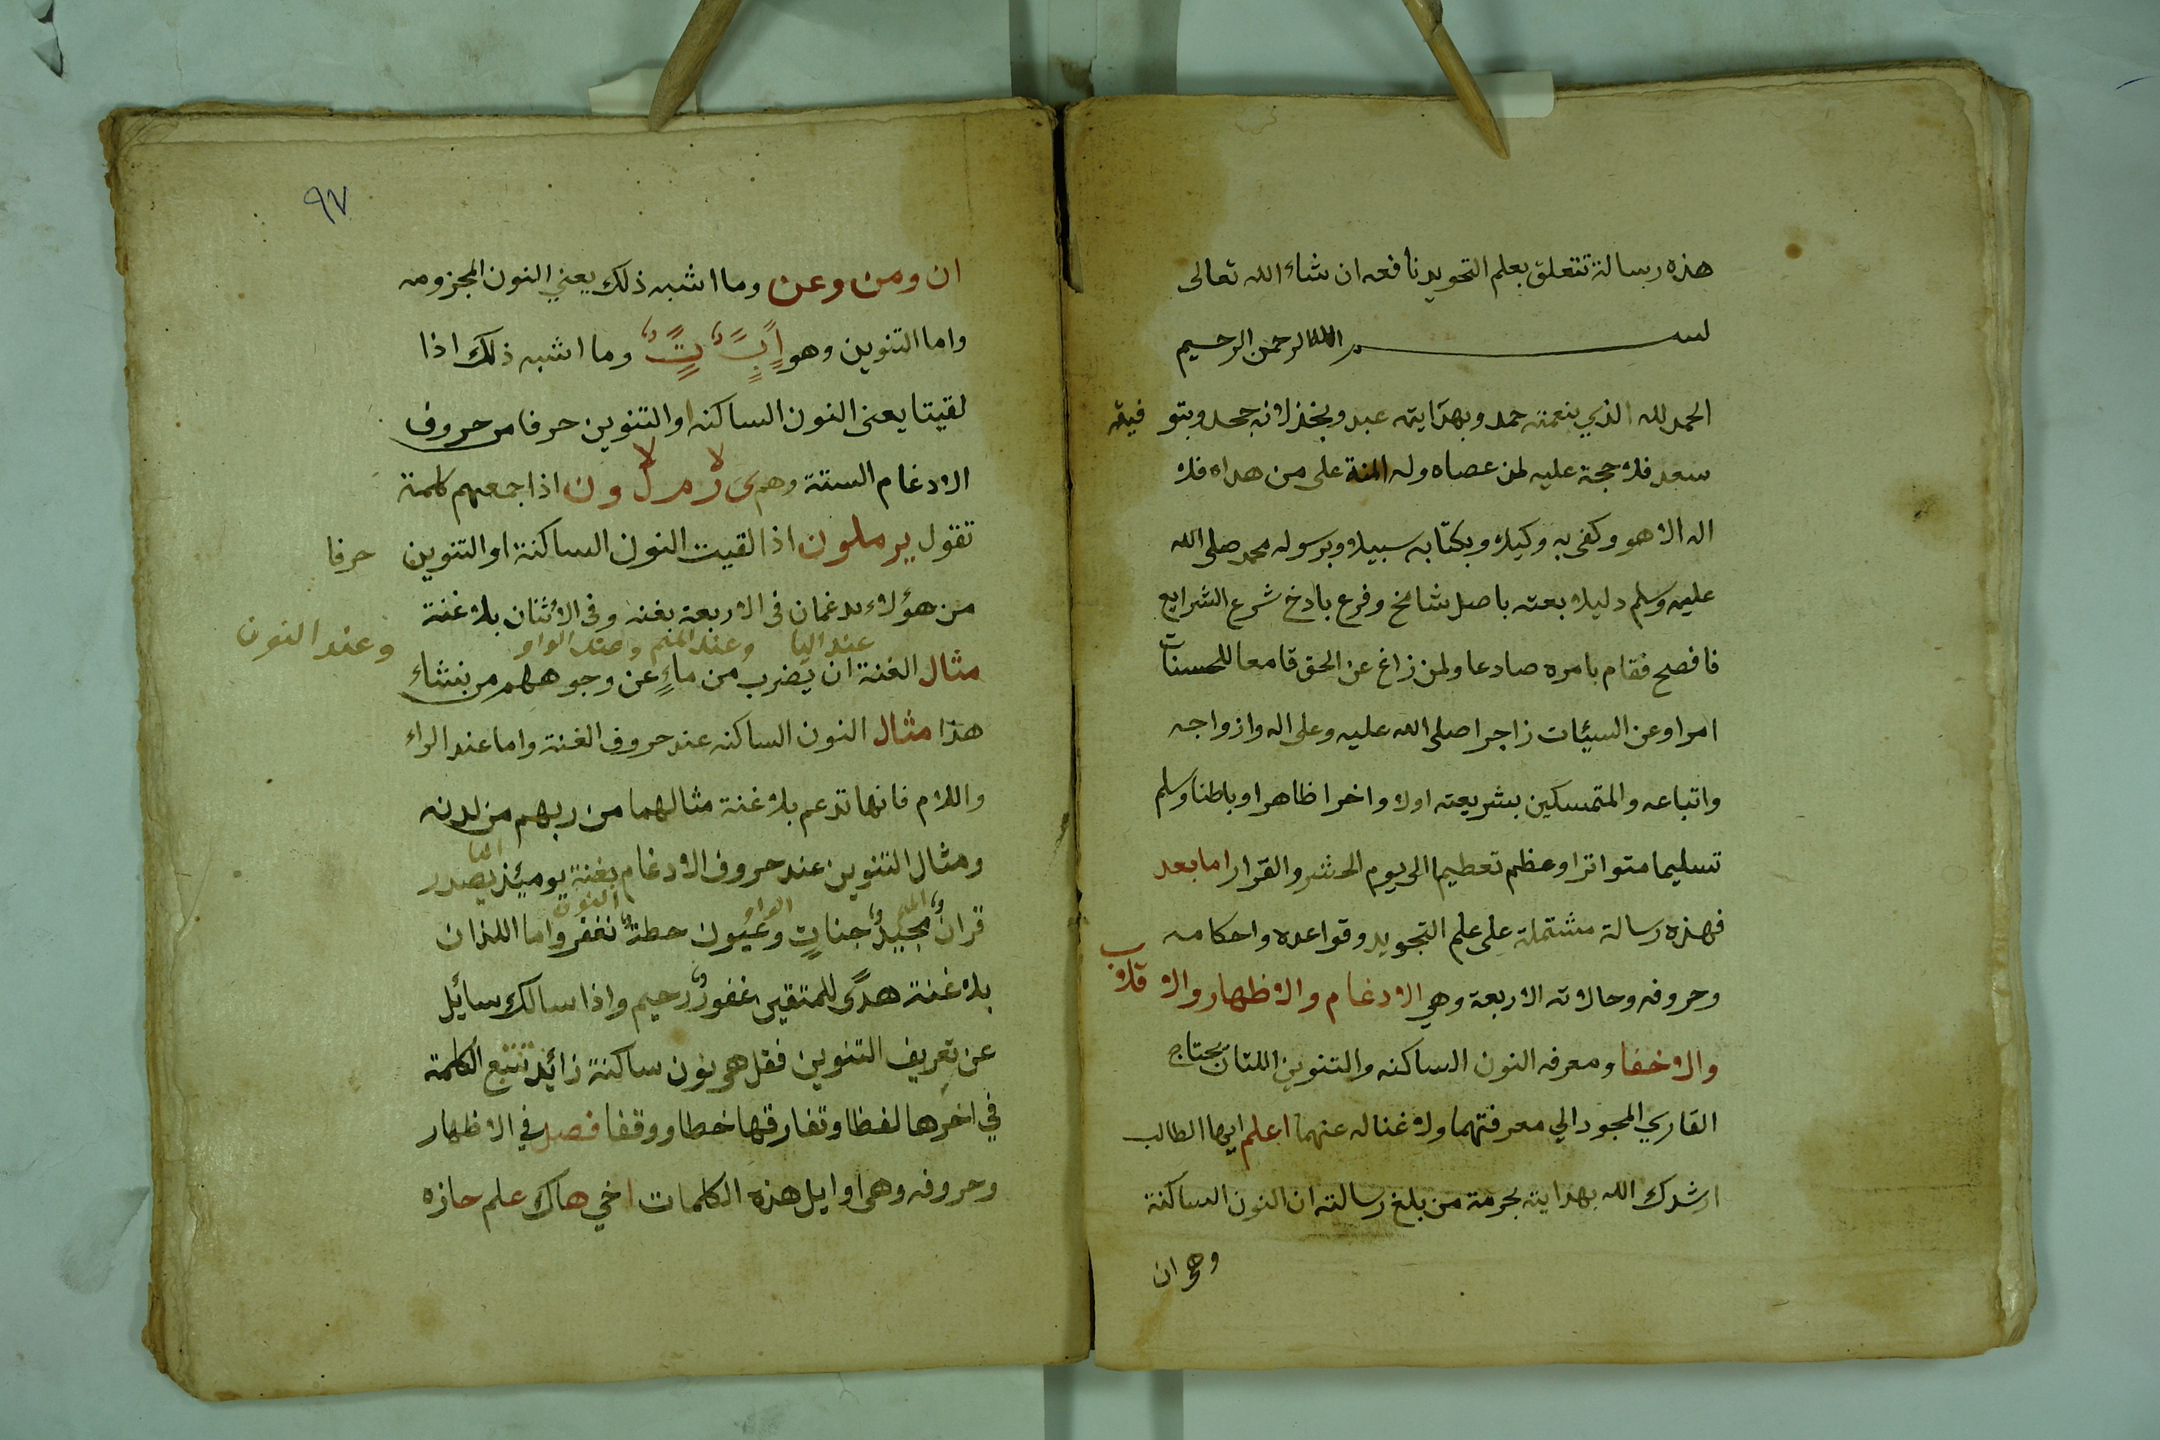 هذه رسالة تتعلق بعلم التجويد نافعه ان شاء الله تعالى
بسم الله الرحمن الرحيم
الحمد لله الذي بنعمته حمد وبهدايته عبد وبخذلانه جحد وبتو فيقه
سعد فلا حجة عليه لمن عصاه وله المنة على من هداه فلا
اله الا هو وكفى به وكيلا وبكتابه سبيلا وبرسوله محمد صلى الله
عليه وسلم دليلا بعثه باصل شامخ وفرع باذخ شرع الشرايع
فافصح فقام بامره صادعا ولمن زاغ عن الحق قامعا للحسنات
امرا وعن السيئات زاجرا صلى الله عليه وعلى اله وازواجه
واتباعه والمتمسكين بشريعته اولا واخرا ظاهرا وباطنا وسلم
تسليما متواترا وعظم تعظيما الى يوم الحشر والقرار اما بعد
فهذه رسالة مشتملة على علم التجويد وقواعده واحكامه
وحروفه وحالاته الاربعة وهي الادغام والاظهار والا قلاب
والاخفا ومعرفه النون الساكنه والتنوين اللتان يحتاج
القاري المجود الي معرفتهما ولا غنا له عنهما اعلم ايها الطالب
ارشدك الله بهدايته بحرمة من بلغ رسالته ان النون الساكنة
وهي ان
٩٧
ان ومن وعن وما اشبه ذلك يعني النون المجزومه
واما التنوين وهو اً بٍ بً تً تٍ وما اشبه ذلك اذا
لقيتا يعني النون الساكنه او التنوين حرفا من حروف
الادغام الستة وهم ى ر م ل و ن اذا جمعهم كلمة
لا لا
تقول يرملون اذا لقيت النون الساكنة او التنوين حرفا
من هؤلاء يدغمان في الاربعة بغنه وفي الاثنان بلا غنة
عند اليا وعند الميم وعند الواو وعند النون
مثال الغنة ان يضرب من ماءٍ عن وجوههم من نشاء
هذا مثال النون الساكنه عند حروف الغنة واما عند الراء
واللام فانها تدغم بلا غنة مثالهما من ربهم من لدنه
ومثال التنوين عند حروف الادغام بغنة يومئذ يصدر
اليا
قران مجيد جناتٍ وعيون حطة نغفر واما اللذان
الميم الواو النون
بلا غنة هدًى للمتقين غفور رحيم واذا سالك سائل
عن تعريف التنوين فقل هو نون ساكنة زائد تتبع الكلمة
في اخرها لفظا وتفارقها خطا ووقفا فصل في الاظهار
وحروفه وهي اوايل هذه الكلمات اخي هاك علم حازه